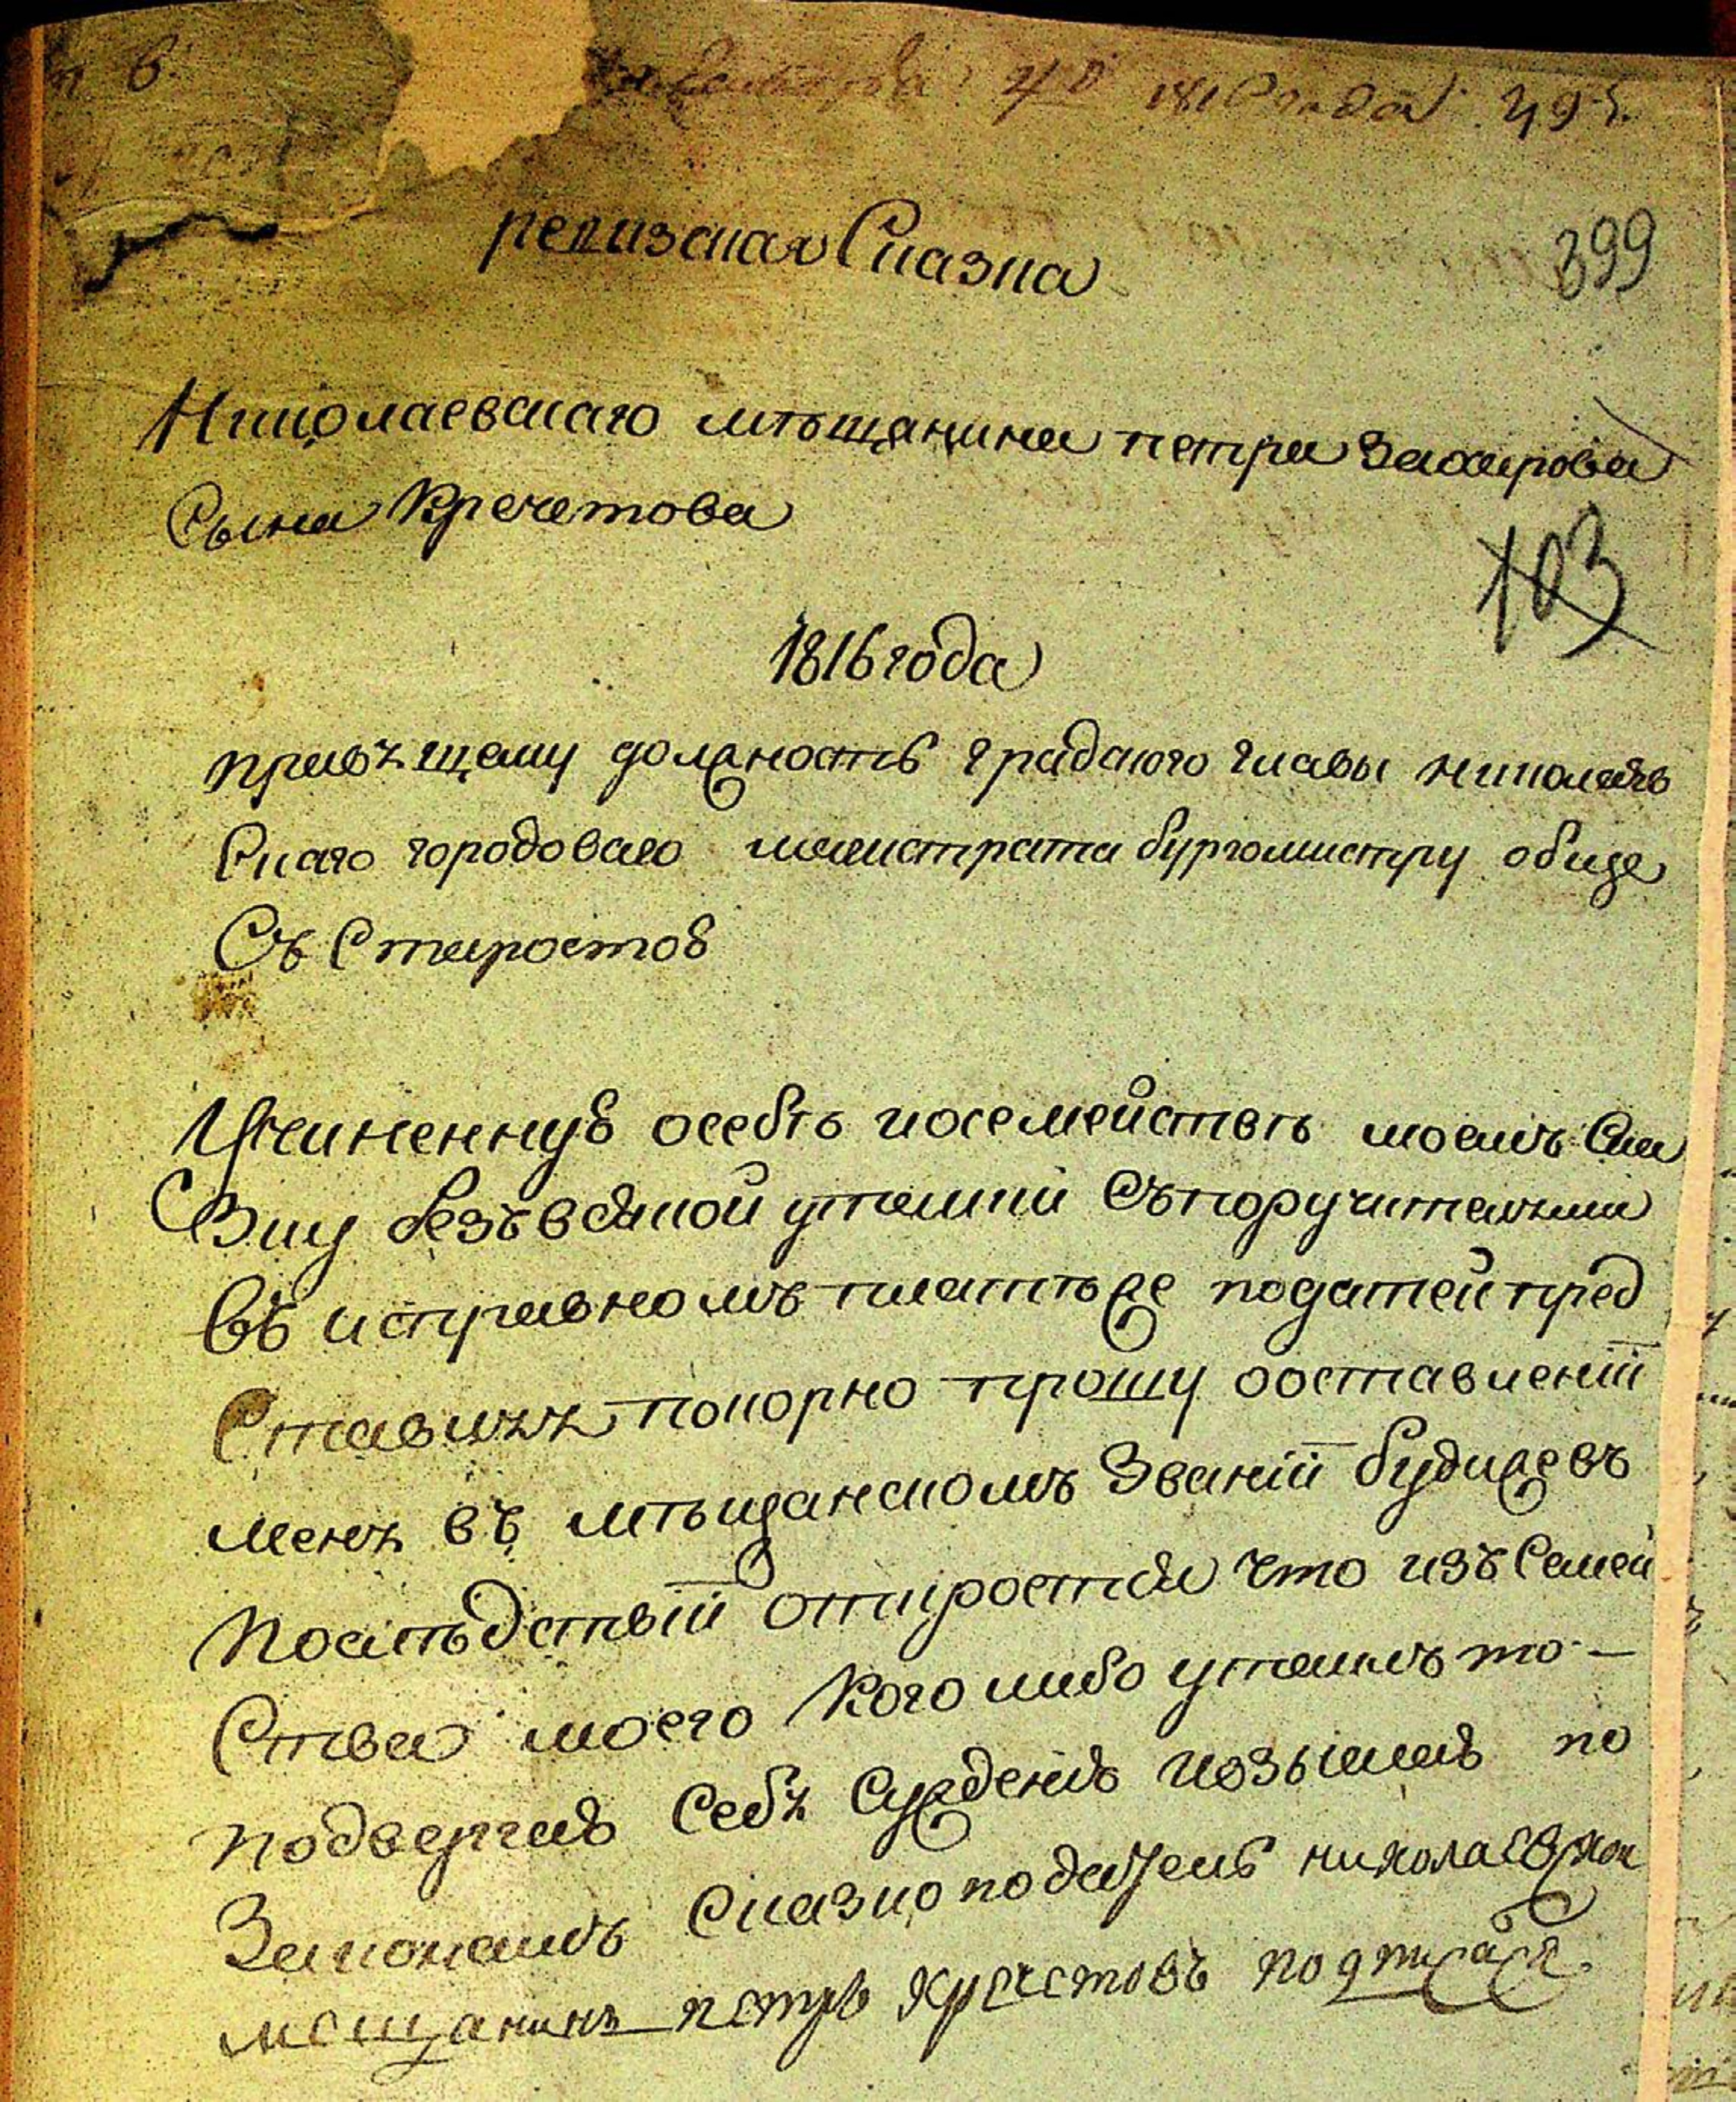 1816 года 495.
ревизская Сказка
399
Николаевскаго мѣщанина петра Захарова
Сына Кречетова
103
1816 года
правящему должность градского главы николаев
Скаго городоваго магистрата бургомистру обще
Съ Старостою
Учиненную осебѣ иосемействѣ моемъ Ска
Зку безъвсякой утайки Съпоручителями
въ исправномъ платѣже податей пред
Ставляя покорно прошу ооставленіи
меня въ мѣщанскомъ Званіи буди жевъ
послѣдствіи откроется что изъ Семей
Ства моего Кого либо утаилъ то —
подвергаю Себя Сужденію ивзысканію по
Законамъ Сказко подаТель николаевской
мещанинъ петръ кречетовъ подписался